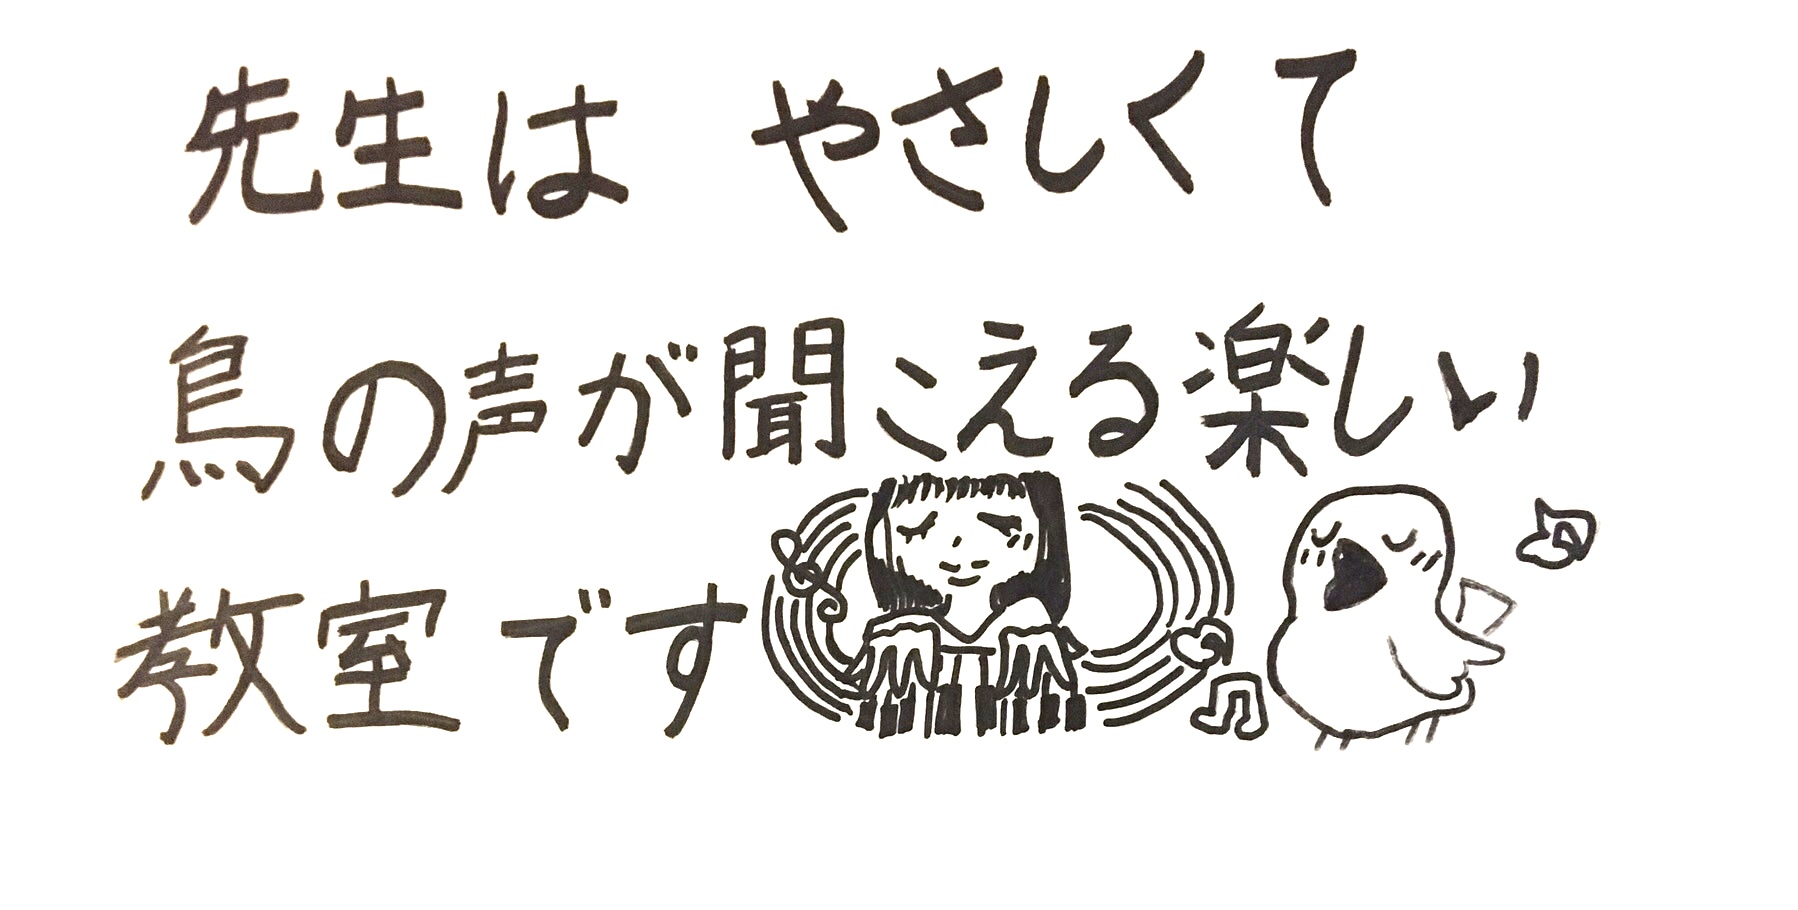 先生は やさしくて
鳥の声が聞こえる楽しい
教室です